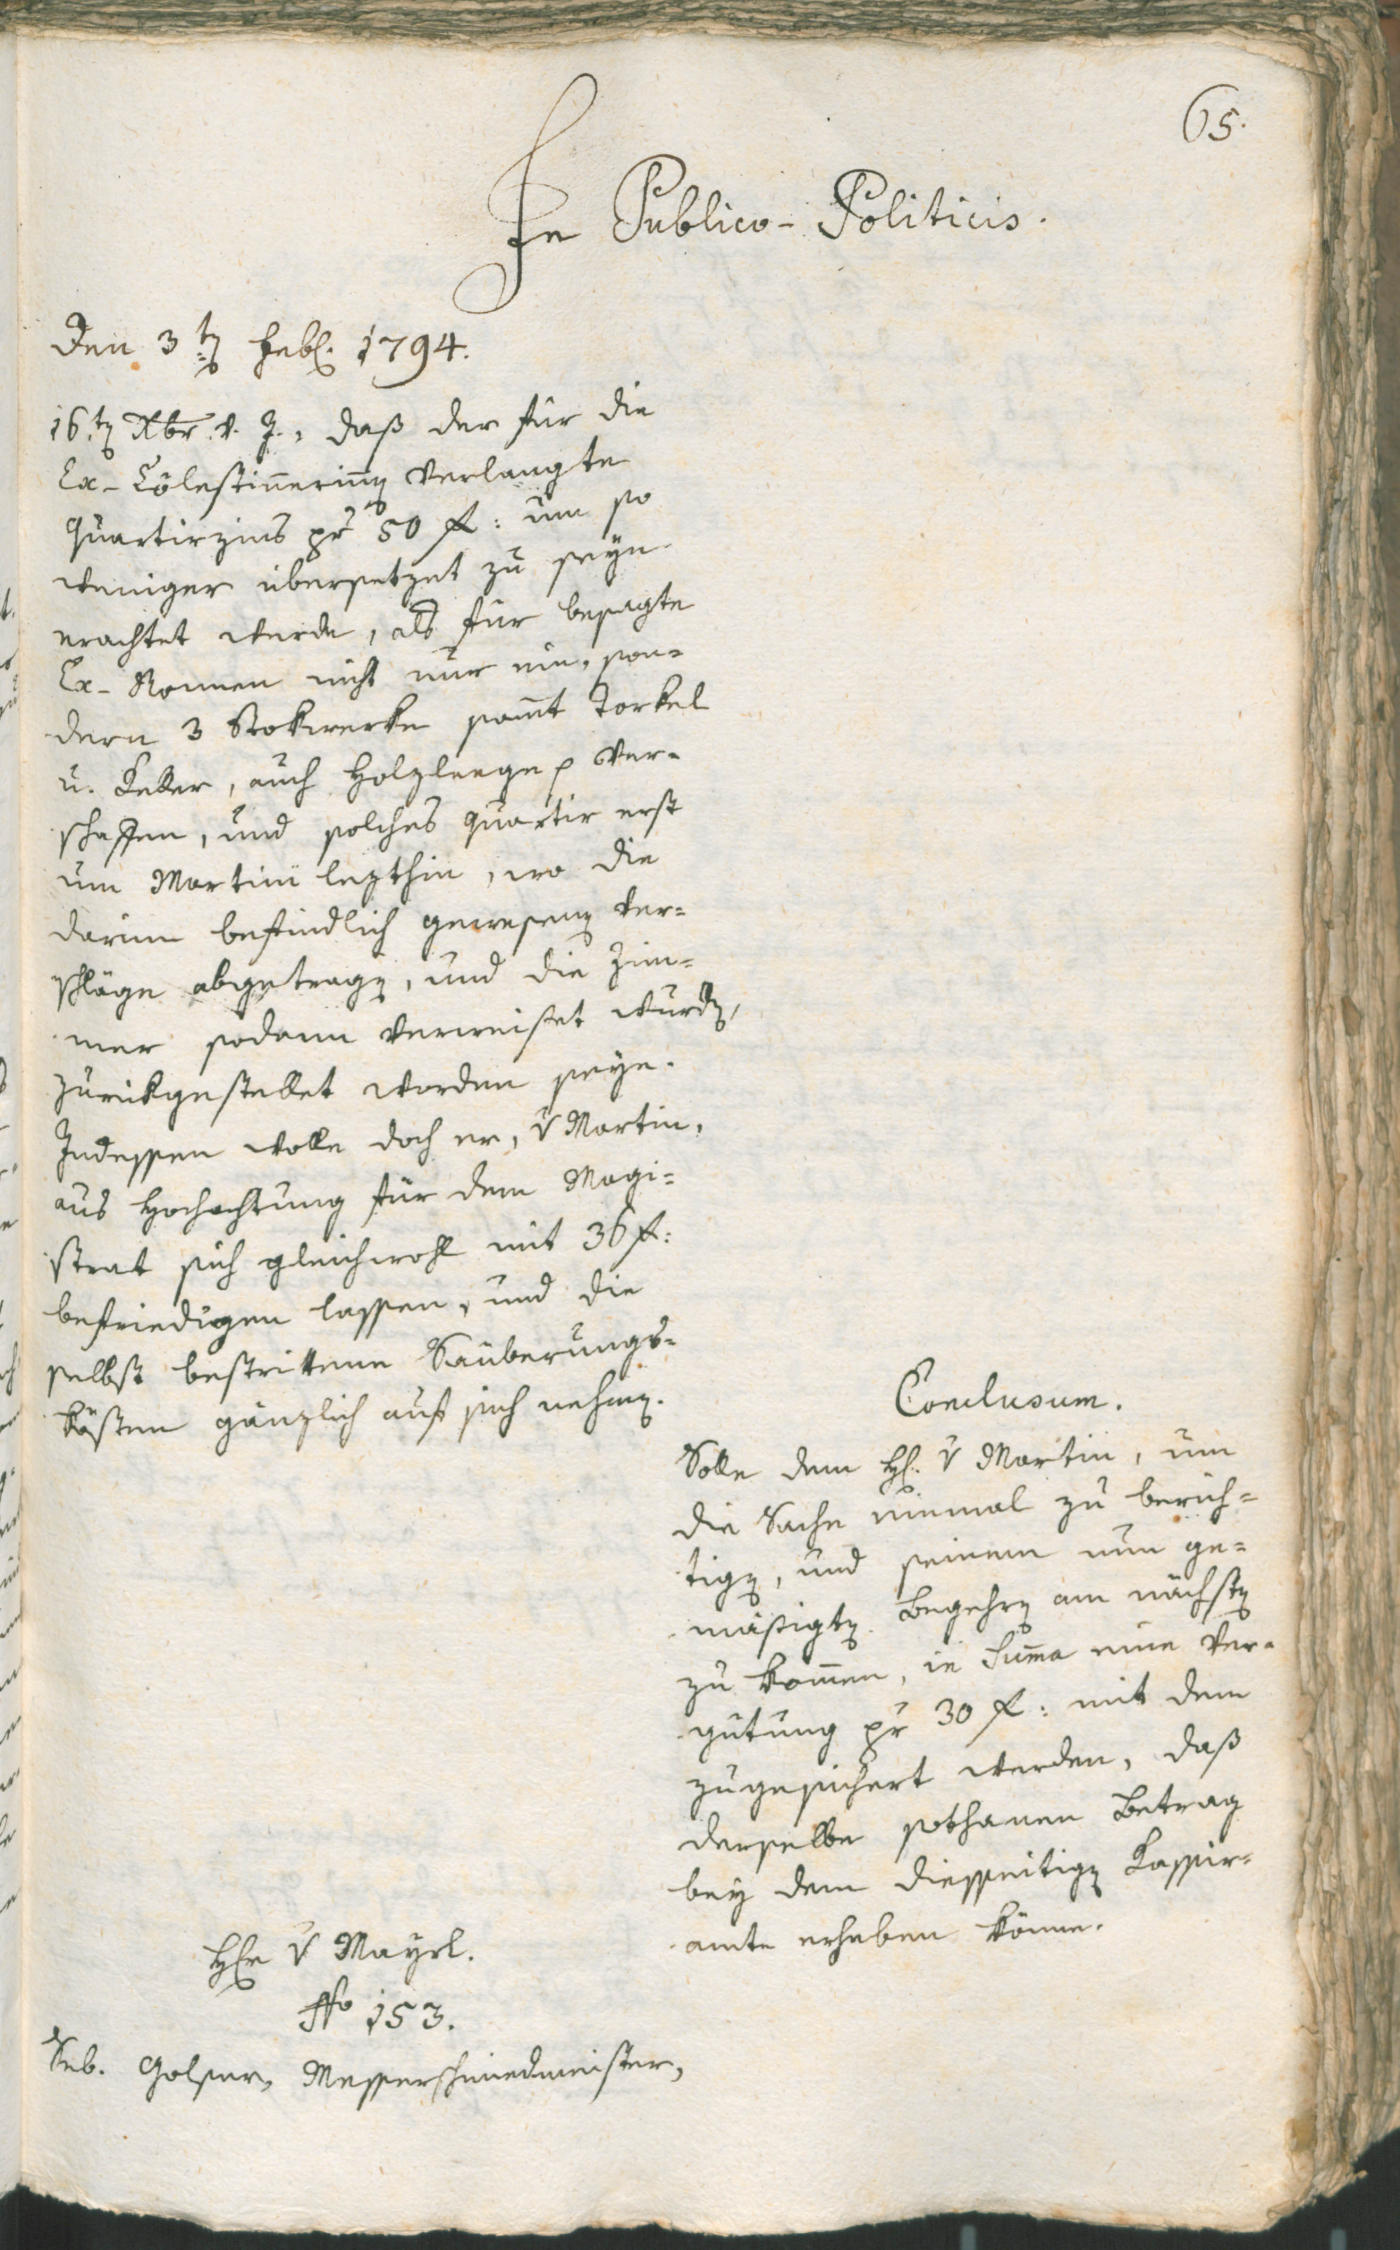 65.
In Publico-Politicis.
Den 3ten Febr. 1794.
16ten Xbr. v. J., daß der für die
Ex-Cölestinnerinnen verlangte
Quartirzins pr 50 f: um so
weniger übersetzet zu seyn
erachtet werde, als für besagte
Ex-Nonnen nicht nur ein, son=
dern 3 Stokwerke sammt Torkel
u. Keller, auch Holzleege p ver=
schaffen, und solches Quartir erst
um Martini lezthin, wo die
darinn befindlich gewesenen Ver=
schläge abgetragen, und die Zim=
mer sodann verweiset wurden,
zurükgestellet worden seye.
Indessen wolle doch er, v Martin,
aus Hochachtung für dem Magi=
strat sich gleichwohl mit 36 f:
befriedigen lassen, und die
selbst bestrittene Säuberungs=
kösten gänzlich auf sich nehmen.
Conclusum.
Solle dem H. v Martin, um
die Sache einmal zu berich=
tigen, und seinem nun ge=
mäßigten Begehren am nächsten
zu kommen, in Summa eine Ver=
gütung pr 30 f: mit dem
zugesichert werden, daß
derselbe sothanen Betrag
bey dem diesseitigen Kassier=
amte erheben könne.
Hr v Mayrl.
No 153.
Seb. Golser, Messerschmiedmeister,